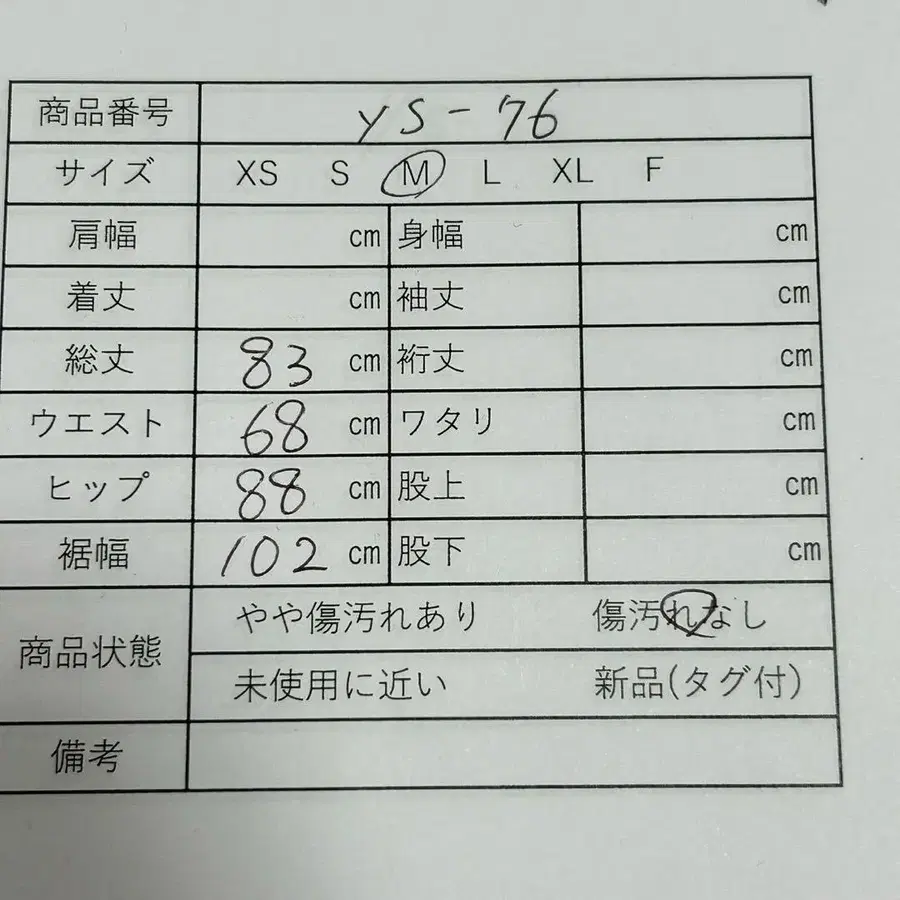 商品番号 YS-76
サイズ XS S M L XL F
肩幅 cm 身幅 cm
着丈 cm 袖丈 cm
総丈 83 cm 裄丈 cm
ウエスト 68 cm ワタリ cm
ヒップ 88 cm 股上 cm
裾幅 102 cm 股下 cm
商品状態 やや傷汚れあり 傷汚れなし
未使用に近い 新品(タグ付)
備考